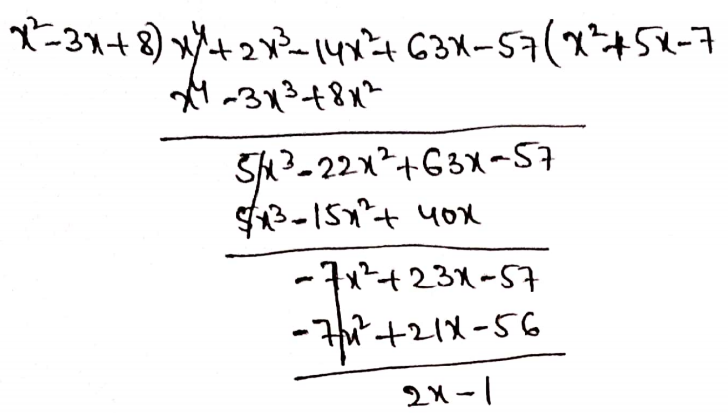 x²-3x+8) x⁴+2x³-14x²+63x-57(x²+5x-7
x⁴-3x³+8x²
5x³-22x²+63x-57
5x³-15x²+40x
-7x²+23x-57
-7x²+21x-56
2x-1